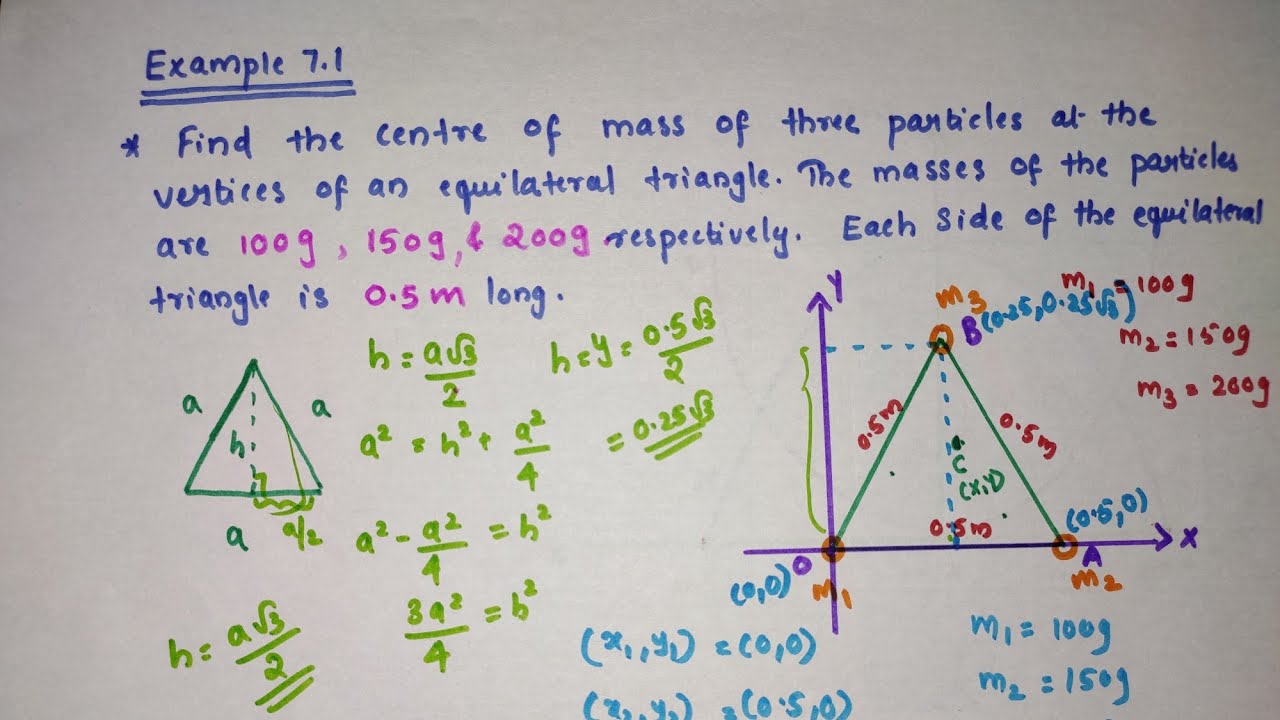 Example 7.1
* Find the centre of mass of three particles at the
vertices of an equilateral triangle. The masses of the particles
are 100g, 150g, & 200g respectively. Each side of the equilateral
triangle is 0.5m long.
a a
h
a a/2
h = a√3/2
a² = h² + a²/4
a² - a²/4 = h²
3a²/4 = h²
h = a√3/2
h = y = 0.5√3/2
= 0.25√3
Y
m3
B (0.25, 0.25√3)
m1 = 100g
m2 = 150g
m3 = 200g
0.5m 0.5m
C
(X,Y)
0.5m
(0.5,0)
X
O
A
(0,0) m1
m2
(x1,y1) = (0,0)
(x2,y2) = (0.5,0)
m1 = 100g
m2 = 150g